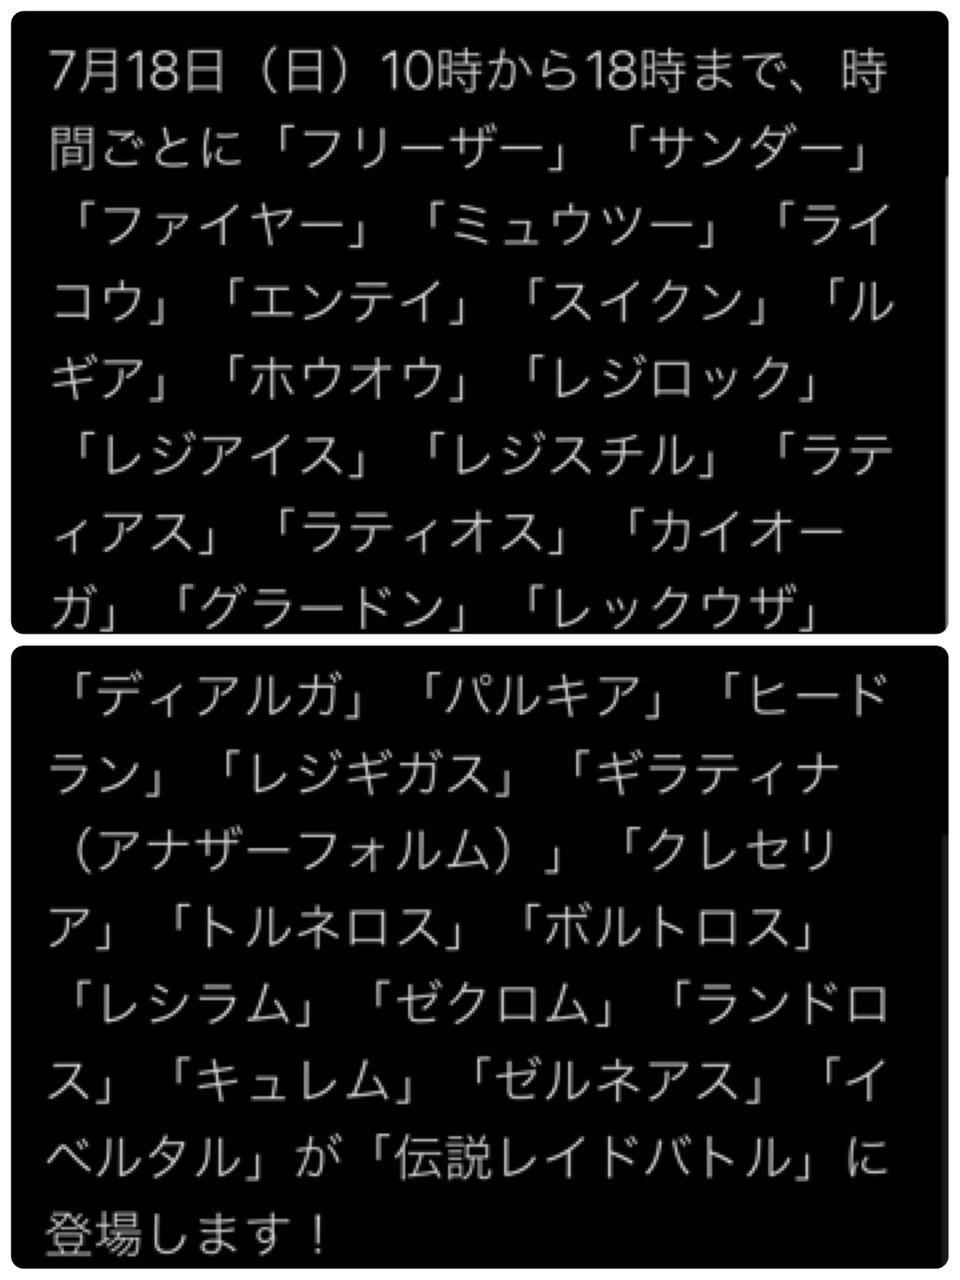 7月18日（日）10時から18時まで、時
間ごとに「フリーザー」「サンダー」
「ファイヤー」「ミュウツー」「ライ
コウ」「エンテイ」「スイクン」「ル
ギア」「ホウオウ」「レジロック」
「レジアイス」「レジスチル」「ラテ
ィアス」「ラティオス」「カイオー
ガ」「グラードン」「レックウザ」
「ディアルガ」「パルキア」「ヒード
ラン」「レジギガス」「ギラティナ
（アナザーフォルム）」「クレセリ
ア」「トルネロス」「ボルトロス」
「レシラム」「ゼクロム」「ランドロ
ス」「キュレム」「ゼルネアス」「イ
ベルタル」が「伝説レイドバトル」に
登場します！